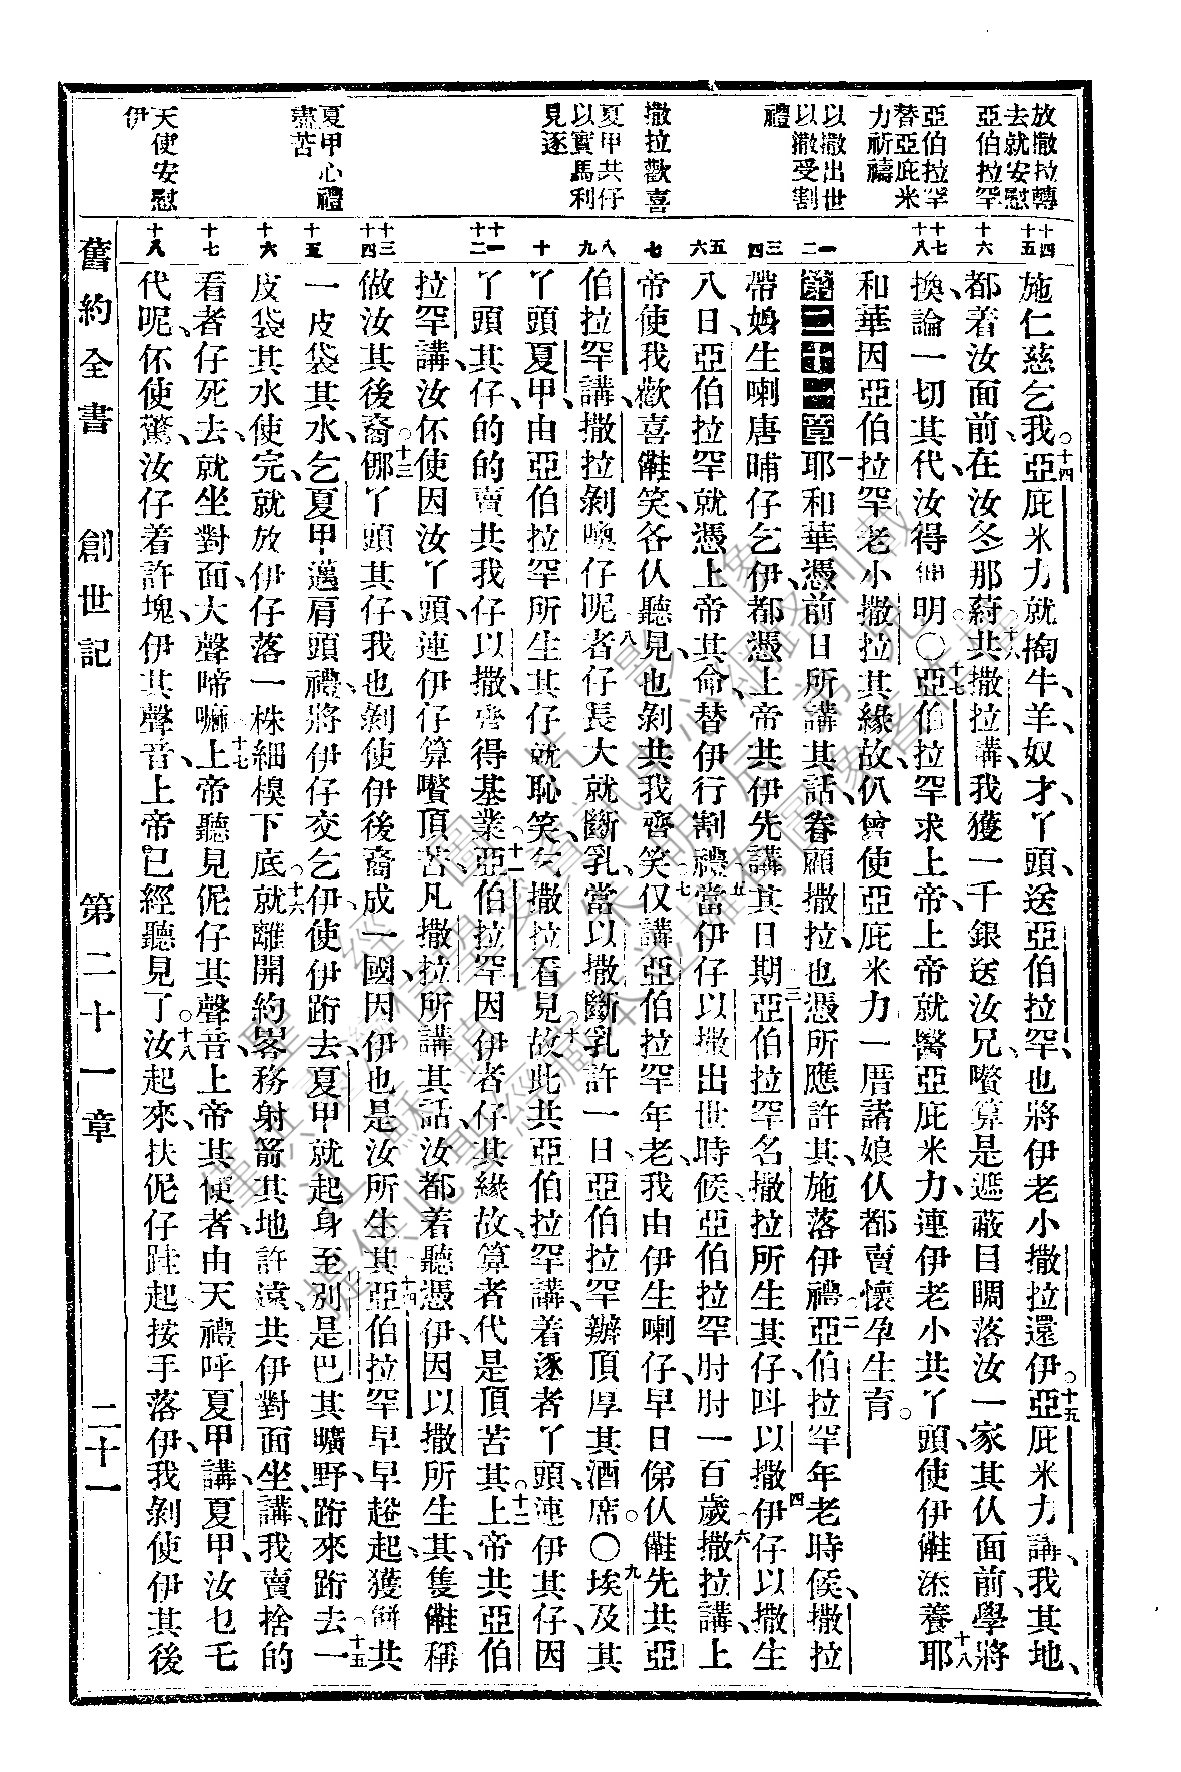 放撒拉轉
去就安慰
亞伯拉罕
亞伯拉罕
替亞庇米
力祈禱
以撒出世
以撒受割
禮
撒拉歡喜
夏甲共仔
以實馬利
見逐
夏甲心禮
盡苦
天使安慰
伊
十四
十五
十六
十七
十八
一
二
三
四
五
六
七
八
九
十
十一
十二
十三
十四
十五
十六
十七
十八
施仁慈乞我。十四亞庇米力就掏牛、羊、奴才、丫頭送亞伯拉罕、也將伊老小撒拉還伊。十五亞庇米力講、我其地、
都着汝面前、在汝冬那蒔。十六共撒拉講、我獲一千銀送汝兄、嚽算是遮蔽目睭落汝一家其仈面前、學將
換論一切其代、汝得伸明〇十七亞伯拉罕求上帝、上帝就醫亞庇米力、連伊老小共丫頭、使伊㑚添養、十八耶
和華因亞伯拉罕老小撒拉其緣故、仈曾使亞庇米力一厝諸娘仈都賣懷孕生育。
第二十一章一耶和華憑前日所講其話、眷顧撒拉、也憑所應許其、施落伊禮。二亞伯拉罕年老時候、撒拉
帶娠生喇唐晡仔乞伊、都憑上帝共伊先講其日期。三亞伯拉罕名撒拉所生其仔、呌以撒。四伊仔以撒生
八日、亞伯拉罕就憑上帝其命、替伊行割禮。五當伊仔以撒出世時候、亞伯拉罕肘肘一百歲。六撒拉講、上
帝使我歡喜㑚笑、各仈聽見也剝共我齊笑。七仅講、亞伯拉罕年老、我由伊生喇仔、早日俤仈㑚先共亞
伯拉罕講、撒拉剝喚仔呢。八者仔長大就斷乳、當以撒斷乳許一日、亞伯拉罕辦頂厚其酒席。〇九埃及其
丫頭夏甲、由亞伯拉罕所生其仔、就恥笑、乞撒拉看見。十故此共亞伯拉罕講、着逐者丫頭、連伊其仔、因
丫頭其仔、的的賣共我仔以撒齊得基業。十一亞伯拉罕因伊者仔其緣故、算者代是頂苦其。十二上帝共亞伯
拉罕講、汝伓使因汝丫頭、連伊仔、算嚽頂苦、凡撒拉所講其話、汝都着聽憑伊、因以撒所生其、隻㑚稱
做汝其後裔。十三㑚丫頭其仔、我也剝使伊後裔成一國、因伊也是汝所生其。十四亞伯拉罕早早趍起、獲餅共
一皮袋其水、乞夏甲邁肩頭禮、將伊仔交乞伊、使伊跡去、夏甲就起身、至別是巴其曠野、跡來跡去。十五一
皮袋其水使完、就放伊仔落一株細模下底。十六就離開約畧務射箭其地許遠、共伊對面坐、講、我賣捨的
看者仔死去、就坐對面、大聲啼嘛。十七上帝聽見伲仔其聲音、上帝其使者、由天禮呼夏甲、講、夏甲、汝乜乇
代呢、伓使驚、汝仔着許塊、伊其聲音、上帝已經聽見了。十八汝起來、扶伲仔跬起、按手落伊、我剝使伊其後
舊約全書　創世記　第二十一章　二十一